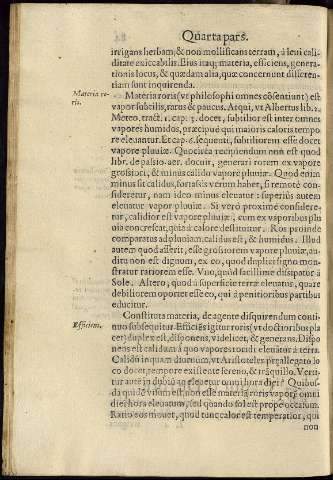 Quarta pars.
irrigans herbam, & non mollificans terram, à leui cali-
ditate exiccabilis. Eius itaq; materia, efficiens, genera-
tionis locus, & quædam alia, quæ concernunt differen-
tiam sunt inquirenda.
Materia ro-
ris.
Materia roris (vt philosophi omnes cõsentiunt) est
vapor subtilis, rarus & paucus. Atqui, vt Albertus lib. 2.
Meteo. tract. 1. cap. 3. docet, subtilior est inter omnes
vapores humidos, præcipuè qui maioris caloris tempo
re eleuantur. Et cap. 6. sequenti, subtiliorem esse docet
vapore pluuiæ. Quocirca recipiendum non est quod
libr. de passio. aer. docuit, generari rorem ex vapore
grossiori, & minus calido vapore pluuiæ. Quod enim
minus sit calidus, fortassis verum habet, si remotè con-
sideretur, nam ideo minus eleuatur: superiùs autem
eleuatur vapor pluuiæ. Si verò proximè considere-
tur, calidior est vapore pluuiæ, cum ex vaporibus plu
uia concrescat, quia à calore destituitur. Ros proinde
comparatus ad pluuiam, calidus est, & humidus. Illud
autem quod asserit, esse grossiorem vapore pluuiæ, au-
ditu non est dignum, ex eo, quod duplici signo mon-
stratur rariorem esse. Vno, quòd facillimè dissipatur à
Sole. Altero, quòd à superficie terræ eleuatur, quare
debiliorem oportet esse eo, qui à penitioribus partibus
educitur.
Constituta materia, de agente disquirendum conti-
Efficiens.
nuo subsequitur. Efficiẽs igitur roris (vt doctoribus pla
cet) duplex est, disponens, videlicet, & generans. Dispo
nens est calidum à quo vapores roridi eleuãtur à terra.
Calidũ inquam diurnum, vt Aristoteles præallegato lo
co docet, tempore existente sereno, & trãquillo. Verti-
tur autẽ in dubiũ an eleuetur omni hora diei? Quibus-
dã quidẽ visum est, non esse materiã roris vaporẽ omni
diei hora eleuatum, sed quando sol est prope occasum.
Ratio eos mouet, quod tunc calor est temperatior, qui
non